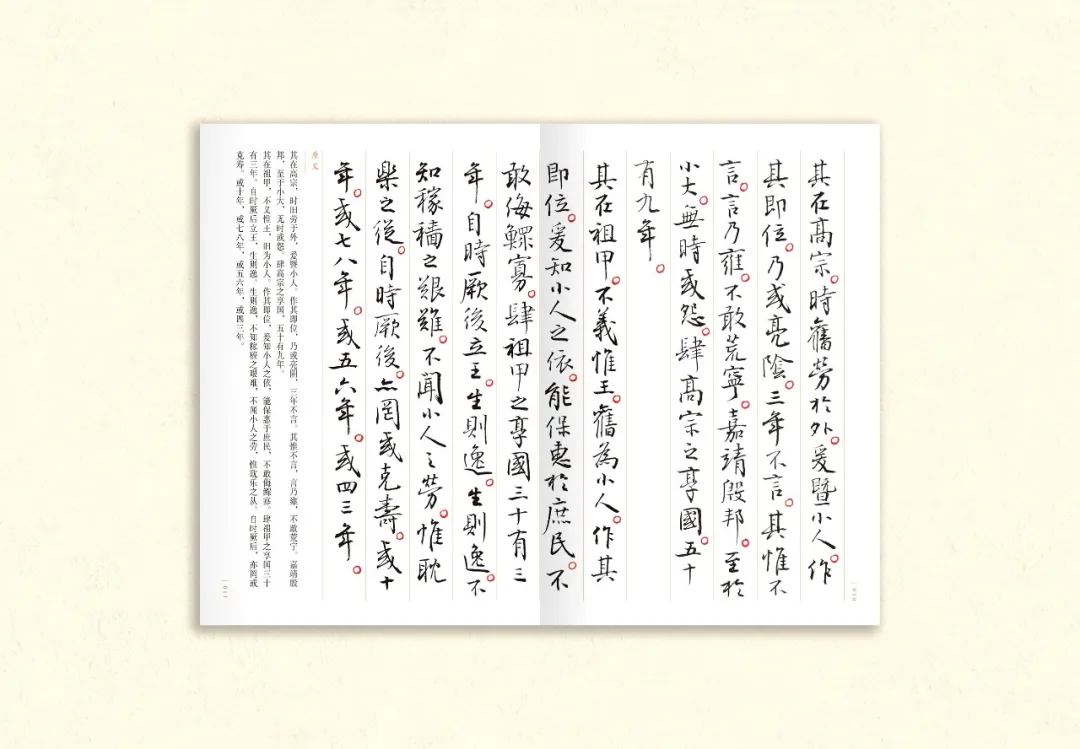 其在高宗。時舊勞於外。爰暨小人。作
其即位。乃或亮陰。三年不言。其惟不
言。言乃雍。不敢荒寧。嘉靖殷邦。至於
小大。無時或怨。肆高宗之享國。五十
有九年。
其在祖甲。不義惟王。舊為小人。作其
即位。爰知小人之依。能保惠於庶民。不
敢侮鰥寡。肆祖甲之享國三十有三
年。自時厥後立王。生則逸。生則逸。不
知稼穡之艱難。不聞小人之勞。惟耽
樂之從。自時厥後。亦罔或克壽。或十
年。或七八年。或五六年。或四三年。
原文
其在高宗,时旧劳于外,爰暨小人。作其即位,乃或亮阴,三年不言。其惟不言,言乃雍。不敢荒宁,嘉靖殷
邦。至于小大,无时或怨。肆高宗之享国,五十有九年。
其在祖甲,不义惟王,旧为小人。作其即位,爰知小人之依,能保惠于庶民,不敢侮鳏寡。肆祖甲之享国三十
有三年。自时厥后立王,生则逸。生则逸,不知稼穑之艰难,不闻小人之劳,惟耽乐之从。自时厥后,亦罔或
克寿。或十年,或七八年,或五六年,或四三年。